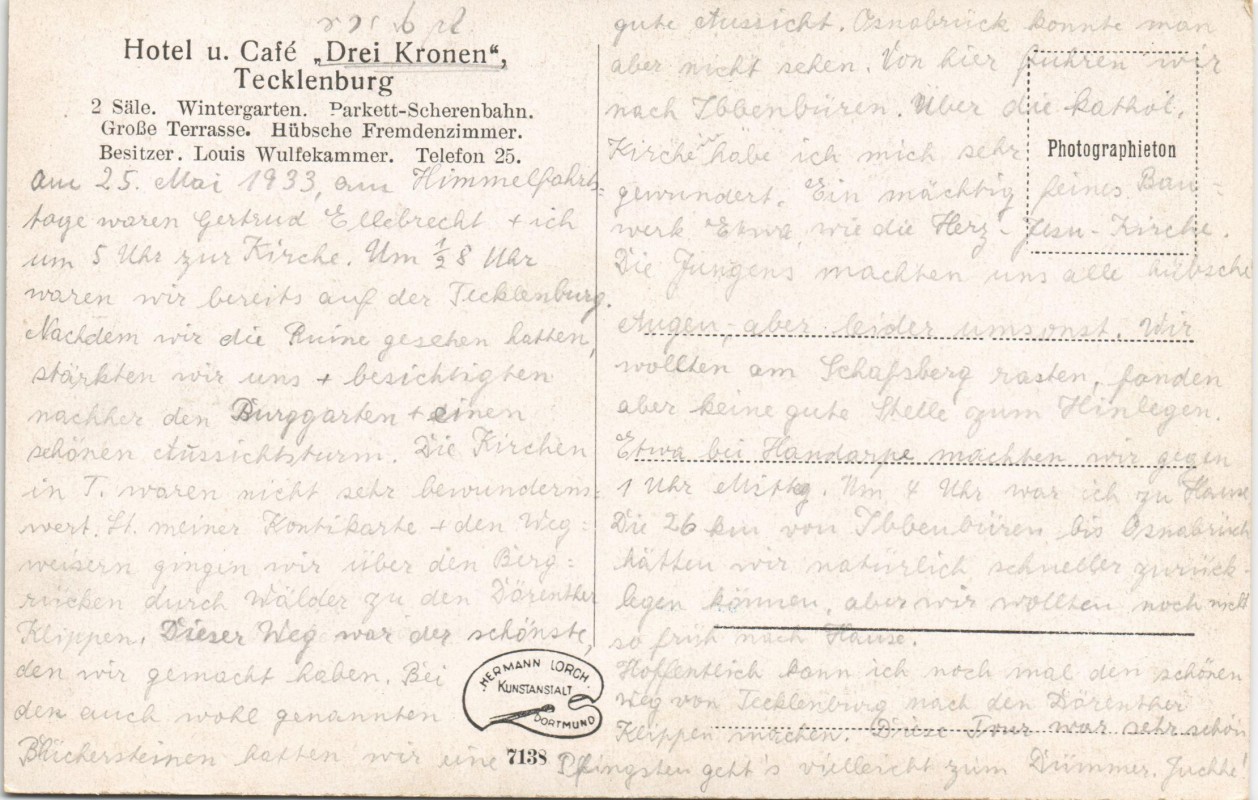 Hotel u. Café „Drei Kronen“,
Tecklenburg
2 Säle. Wintergarten. Parkett-Scherenbahn.
Große Terrasse. Hübsche Fremdenzimmer.
Besitzer. Louis Wulfekammer. Telefon 25.
Am 25. Mai 1933, am Himmelfahrts=
tage waren Gertrud Ellebrecht + ich
um 5 Uhr zur Kirche. Um ½ 8 Uhr
waren wir bereits auf der Tecklenburg.
Nachdem wir die Ruine gesehen hatten,
stärkten wir uns + besichtigten
nachher den Burggarten + einen
schönen Aussichtsturm. Die Kirchen
in T. waren nicht sehr bewunderns=
wert. Lt. meiner Kontikarte + den Weg=
weisern gingen wir über den Berg=
rücken durch Wälder zu den Dörenther
Klippen. Dieser Weg war der schönste,
den wir gemacht haben. Bei
den auch wohl genannten
Bückersteinen hatten wir eine
gute Aussicht. Osnabrück konnte man
aber nicht sehen. Von hier fuhren wir
nach Ibbenbüren. Über die kathol.
Kirche habe ich mich sehr
gewundert. Ein mächtig feines Bau-
werk Etwa wie die Herz-Jesu-Kirche.
Die Jungens machten uns alle hübsche
Augen, aber leider umsonst. Wir
wollten am Schafsberg rasten, fanden
aber keine gute Stelle zum Hinlegen.
Etwa bei Handarpe machten wir gegen
1 Uhr Mittg. Um 4 Uhr war ich zu Hause
Die 26 km von Ibbenbüren bis Osnabrück
hätten wir natürlich schneller zurück-
legen können, aber wir wollten noch nicht
so früh nach Hause.
Hoffentlich kann ich noch mal den schönen
Weg von Tecklenburg nach den Dörenther
Klippen machen. Diese Tour war sehr schön
Pfingsten geht's vielleicht zum Dümmer. Juchhe!
Photographieton
HERMANN LORCH
KUNSTANSTALT
DORTMUND
7138